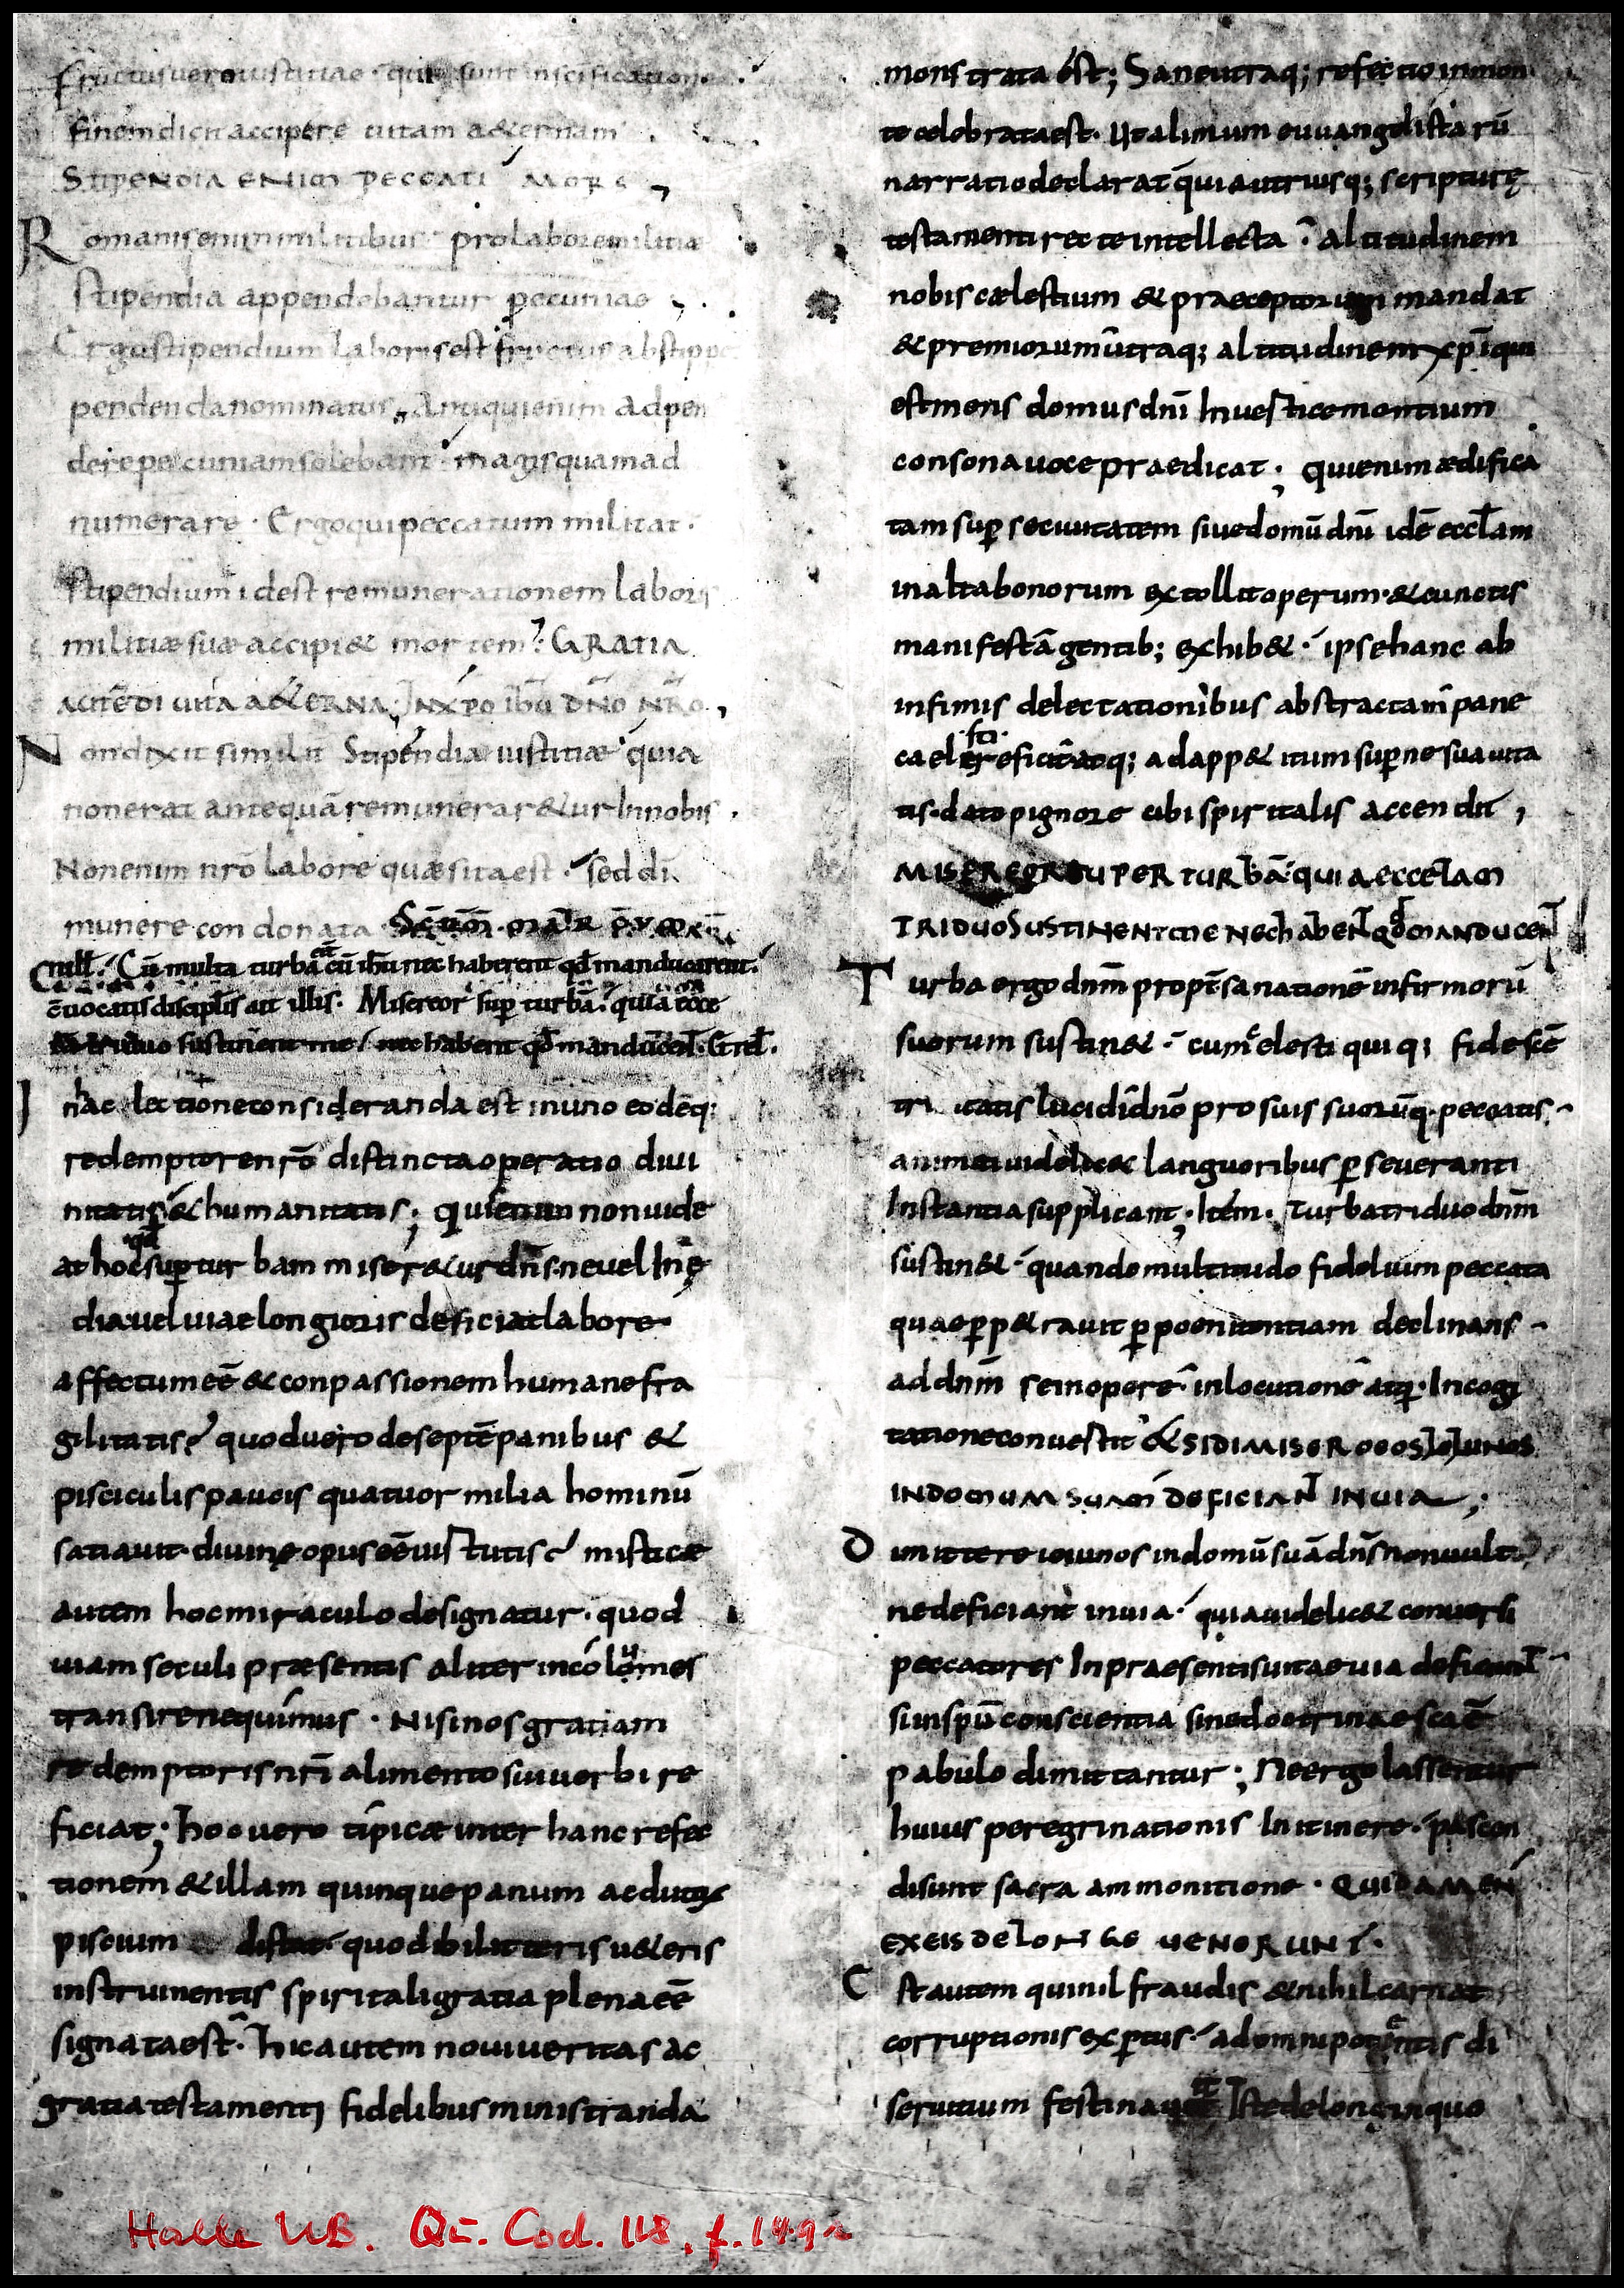 Fructus vero iustitiae · qui sunt in scificatione
finem dicit accipere uitam a&ernam
STIPENDIA ENIM PECCATI MORS
Romanis enim militibus pro labore militiae
stipendia appendebantur pecuniae
Ergo stipendium laboris est fructus ab stipe
pendenda nominatus. Antiqui enim adpen
dere pecuniam solebant magis quam ad
numerare · Ergo qui peccatum militat ·
stipendium idest remunerationem laboris
militiæ suæ accipi& mortem: GRATIA
AUTĒ DI UITA A&ERNA IN XPO IHU DNO NRO,
Non dixit similit Stipendia iustitiæ quia
non erat antequā remunerar&ur In nobis.
Non enim nr̄o labore quæsita est · sed dī
munere con donata
Cū multa turba eēt cū ihu nec haberent qd manducarent.
cuocatis discipl̄is ait illis: Misereor sup turbā: quia ecce
triduo sustinent me / nec habent qd manducent.
In hac lectione consideranda est in uno eodēq;
redemptore nr̄o distincta operatio diui
nitatis & humanitatis; qui enim non uide
at hoc qd sup tur bam miser&ur dn̄s ne uel Inę
dia uel uiae longioris deficiat labore
affectum eē & conpassionem humane fra
gilitatis quod uero de septē panibus &
pisciculis paucis quatuor milia hominū
satiauit diuinę opus eē uirtutis misticæ
autem hoc miraculo designatur · quod
uiam seculi præsentis aliter incolomes
transire nequimus · Nisi nos gratiam
redemptoris nr̄i alimento sui uerbi re
ficiat; hoc uero tipicæ inter hanc refec
tionem & illam quinque panum ac duūm
piscium distat · quod ibi litteris u&eris
instrumentis spiritali gratia plena eē
signata est. hic autem noui ueritas ac
gratia testamenti fidelibus ministranda
monstrata est; Sane utraq; refectio in mon
te celebrata est. Ut alimum euuangelistarū
narratio declarat quia utriusq; scripturę
testamenti recte intellecta altitudinem
nobis cælestium & praeceptorum mandat
& premiorum utraq; altitudinem xp̄i qui
est mons domus dn̄i In uestice montium
consona uoce praedicat; qui enim ædifica
tam sup se ciuitatem siue domū dn̄i idē eccl̄am
in alta bonorum extollit operum & cunctis
manifestā gentib; exhib& · ipse hanc ab
infimis delectationibus abstractam pane
caelesti reficit atq; ad app&itum supne suauita
tis · dato pignore cibi spiritalis accendit,
MISEREOR SUPER TURBĀ · QUIA ECCE IAM
TRIDUO SUSTINENT ME NEC HABENT QD MANDUCENT
Turba ergo dnm̄ propt̄ sanationē infirmorū
suorum sustin& · cum electi quiq; fide scē
tri itatis lucidi dnō pro suis suorūq; peccatis
animae uidelic& languoribus p seueranti
Instantia supplicant; Item · Turba triduo dnm̄
sustin& · quando multitudo fidelium peccata
quae pp&rauit p poenitentiam declinans
ad dnm̄ se in opere in locutione atq; In cogi
tatione conuertit &SI DIMISERO EOS IEIUNOS
IN DOMUM SUAM DEFICIANT IN UIA;
Dimittere ieiunos in domū suā dn̄s non uult
ne deficiant in uia · quia uidelic& conuersi
peccatores In praesentis uitae uia deficiunt
si in spū conscientia sine doctrinae scāē
pabulo dimittantur; Ne ergo lassentur
huius peregrinationis In itinere · pascen
di sunt sacra ammonitione · QUIDAM EN
EX EIS DE LONGE VENERUNT.
Est autem qui nil fraudis & nihil carnat
corruptionis exptus · ad omnipotentis di
seruitium festinauit Iste de longinquo
Halle UB. Qu. Cod. 118, f. 149r